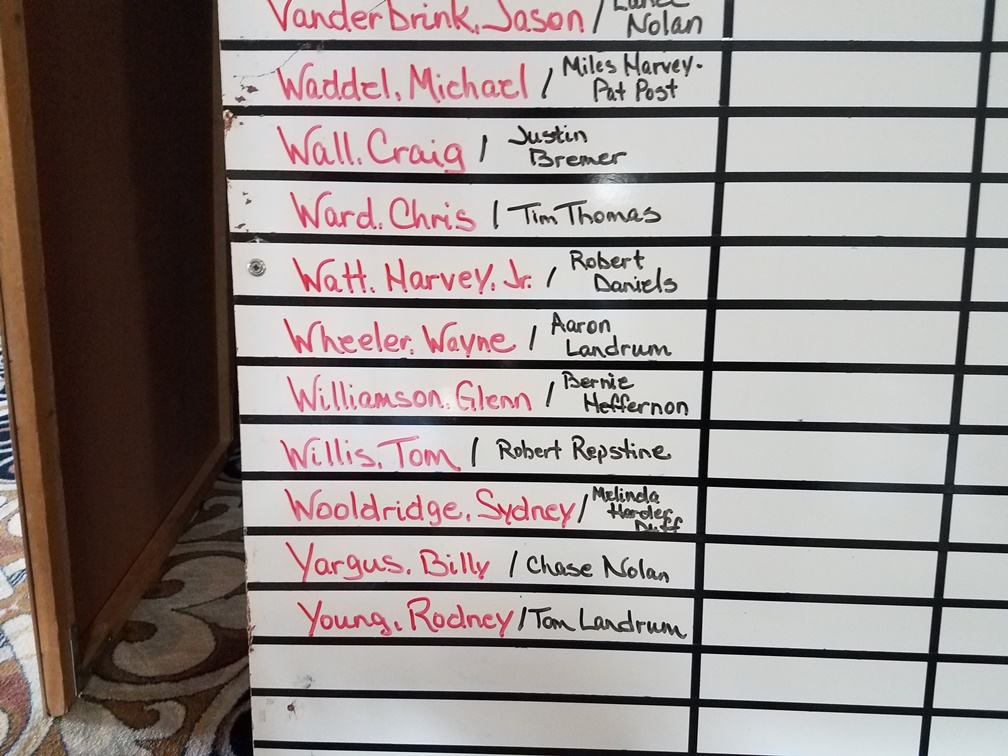 Vanderbrink, Jason / Lance Nolan
Waddel, Michael / Miles Harvey- Pat Post
Wall, Craig / Justin Bremer
Ward, Chris / Tim Thomas
Watt, Harvey, Jr. / Robert Daniels
Wheeler, Wayne / Aaron Landrum
Williamson, Glenn / Bernie Heffernon
Willis, Tom / Robert Repstine
Wooldridge, Sydney / Melinda Harder Duff
Yargus, Billy / Chase Nolan
Young, Rodney / Tom Landrum